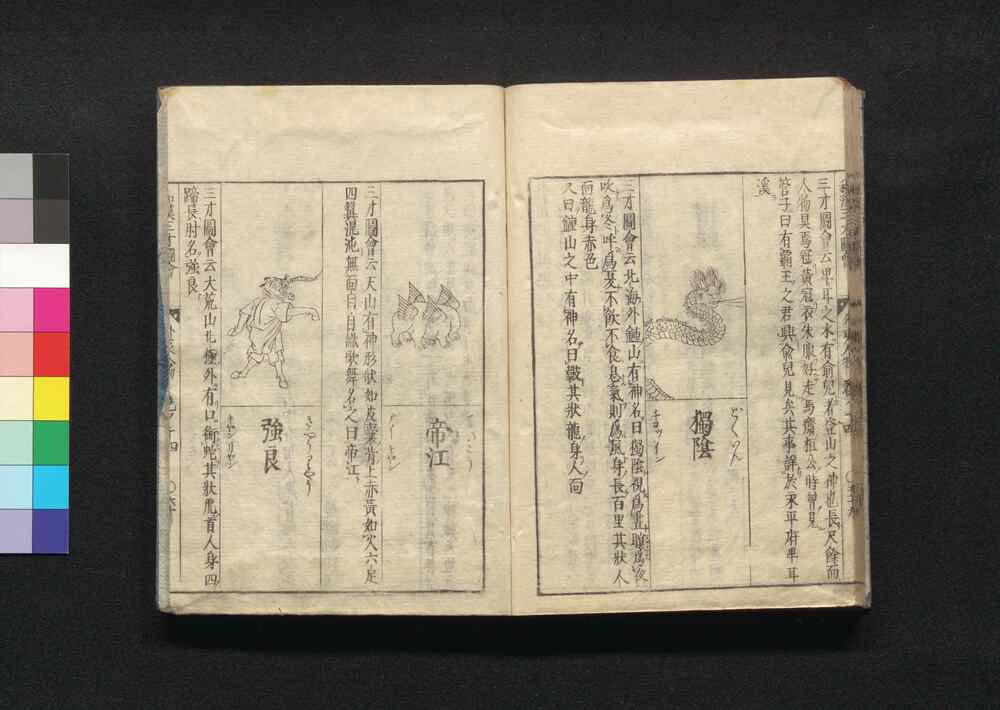 三才圖會云卑耳之水有兪兒者登山之神也長尺餘而
人物具焉冠黃冠衣朱服好走馬齊桓公時曾見
管子曰有霸王之君興兪兒見矣其事詳於永平府卑耳
溪
獨陰
三才圖會云北海外鍾山有神名曰獨陰視爲晝瞑爲夜
吹爲冬呼爲夏不飲不食息氣則爲風身長百里其狀人
面龍身赤色
又曰鍾山之中有神名曰皷其狀龍身人面
帝江
三才圖會云天山有神形狀如皮囊背上赤黃如火六足
四翼混沌無面目自識歌舞名之曰帝江
強良
三才圖會云大荒山北極外有口銜蛇其狀虎首人身四
蹄長肘名強良